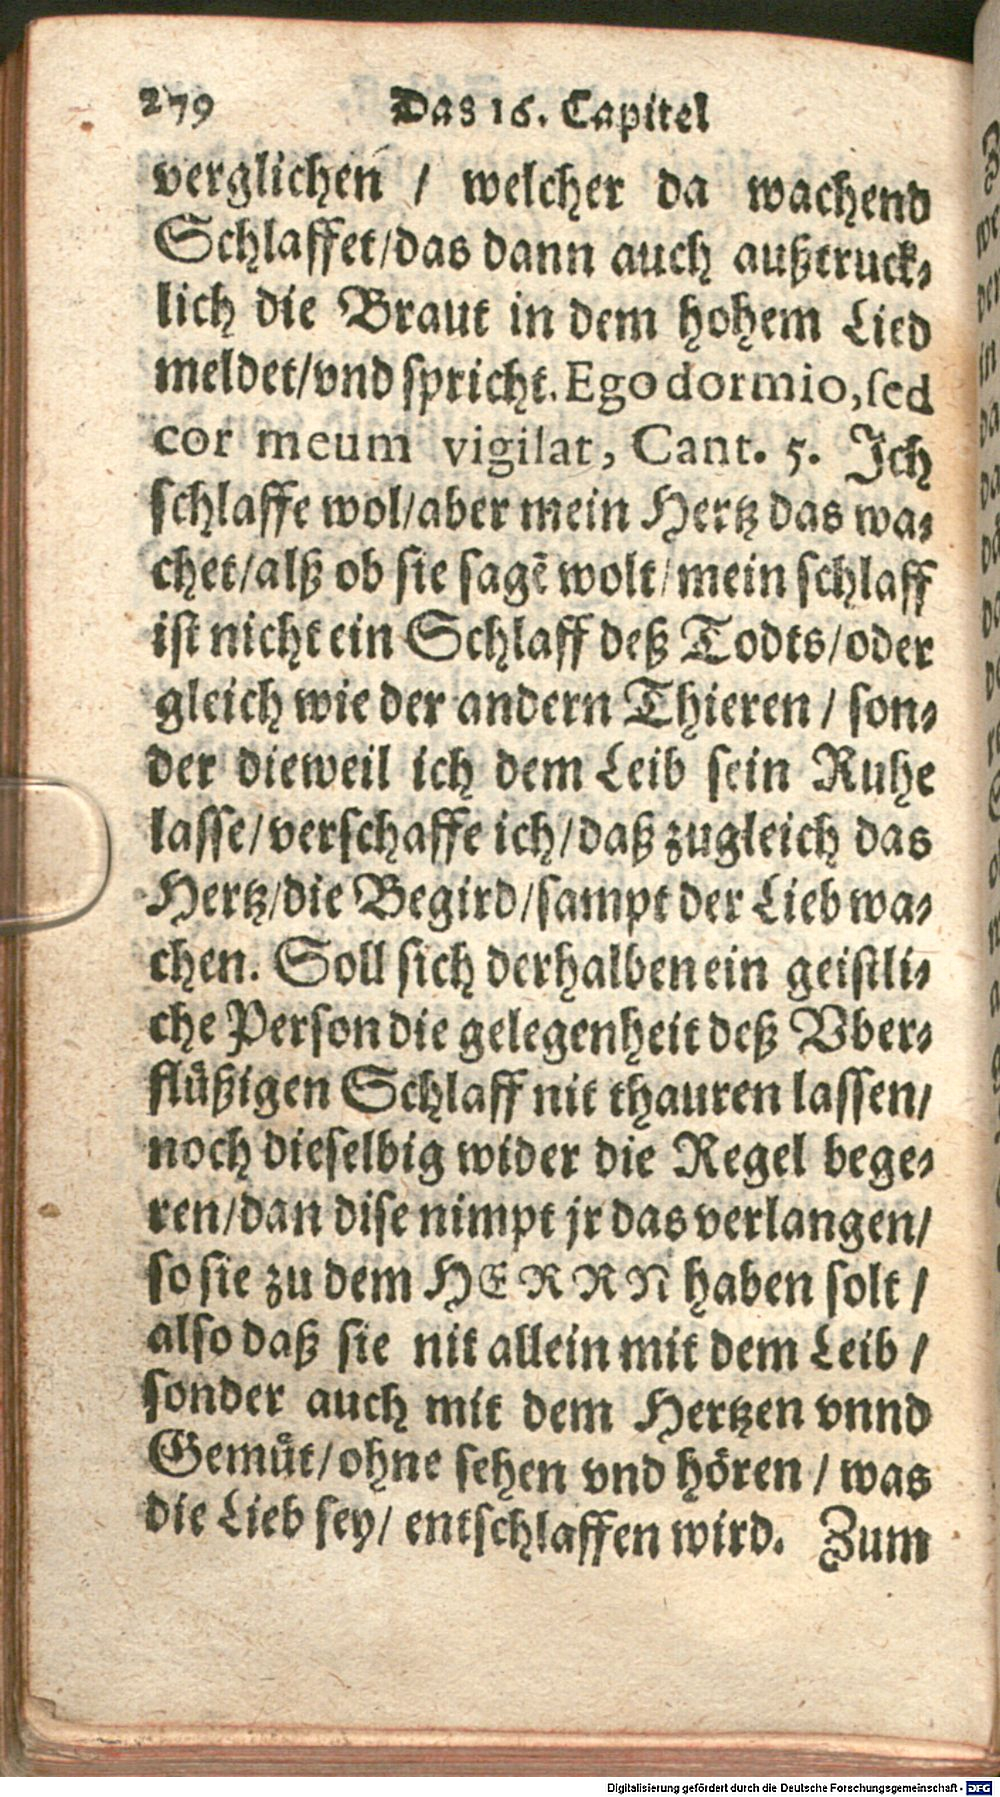 279 Das 16. Capitel
verglichen / welcher da wachend
Schlaffet/das dann auch außtruck⸗
lich die Braut in dem hohem Lied
meldet/vnd spricht. Ego dormio, sed
cor meum vigilat, Cant. 5. Ich
schlaffe wol/aber mein Hertz das wa⸗
chet/alß ob sie sagẽ wolt/mein schlaff
ist nicht ein Schlaff deß Todts/oder
gleich wie der andern Thieren / son⸗
der dieweil ich dem Leib sein Ruhe
lasse/verschaffe ich/daß zugleich das
Hertz/die Begird/sampt der Lieb wa⸗
chen. Soll sich derhalben ein geistli⸗
che Person die gelegenheit deß Vber⸗
flüßigen Schlaff nit thauren lassen/
noch dieselbig wider die Regel bege⸗
ren/dan dise nimpt jr das verlangen/
so sie zu dem HERRN haben solt /
also daß sie nit allein mit dem Leib /
sonder auch mit dem Hertzen vnnd
Gemüt/ohne sehen vnd hören / was
die Lieb sey/ entschlaffen wird. Zum
Digitalisierung gefördert durch die Deutsche Forschungsgemeinschaft - DFG